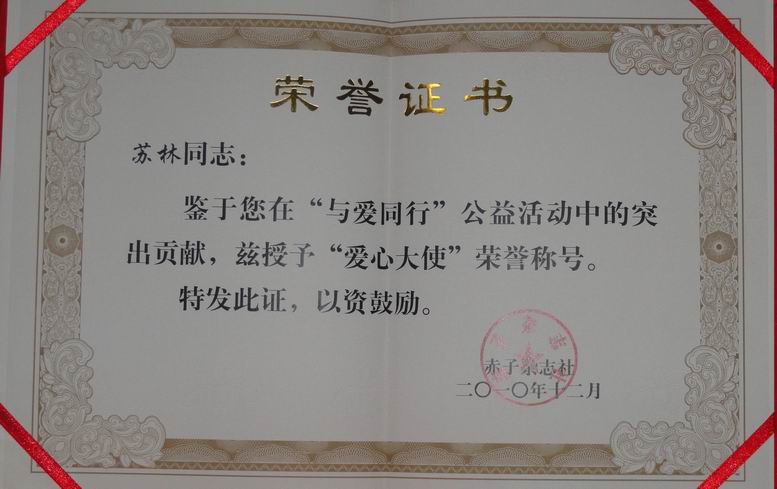 荣誉证书
苏林同志：
鉴于您在“与爱同行”公益活动中的突
出贡献，兹授予“爱心大使”荣誉称号。
特发此证，以资鼓励。
赤子杂志社
二〇一〇年十二月